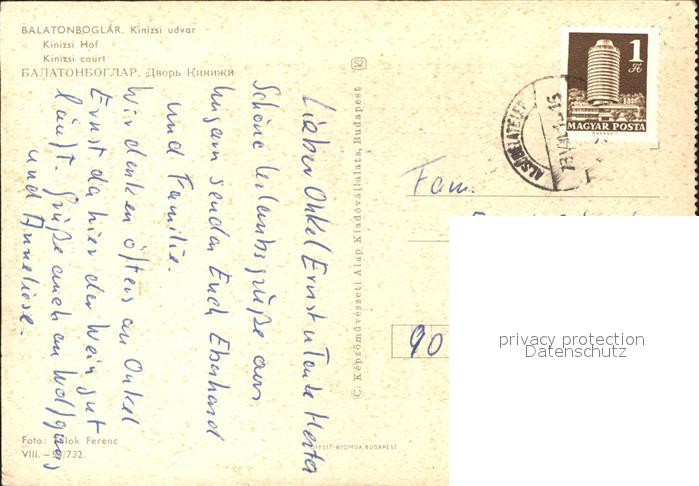 BALATONBOGLÁR. Kinizsi udvar
Kinizsi Hof
Kinizsi court
БАЛАТОНБОГЛАР. Дворь Кинижи
Lieber Onkel Ernst u Tante Herta
Schöne Urlaubsgrüße aus
Ungarn senden Euch Eberhard
und Familie.
Wir denken öfters an Onkel
Ernst da hier der Wein gut
läuft. Grüße auch an Wolfgang
und Anneliese.
Foto: Ferenc
VIII. – 732.
SZ
C Képzőművészeti Alap Kiadóvállalata, Budapest
OFFSET-NYOMDA, BUDAPEST
1
Ft
MAGYAR POSTA
Fam.
90
privacy protection
Datenschutz